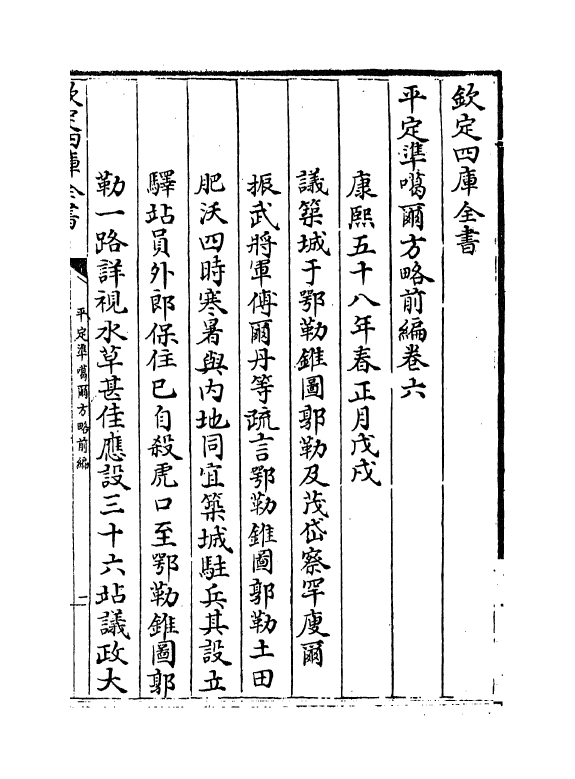 欽定四庫全書
平定準噶爾方略前編卷六
康熙五十八年春正月戊戌
議築城于鄂勒錐圖郭勒及茂岱察罕廋爾
振武將軍傅爾丹等疏言鄂勒錐圖郭勒土田
肥沃四時寒暑與内地同宜築城駐兵其設立
驛站員外郎保住已自殺虎口至鄂勒錐圖郭
勒一路詳視水草甚佳應設三十六站議政大
欽定四庫全書
平定準噶爾方略前編
一